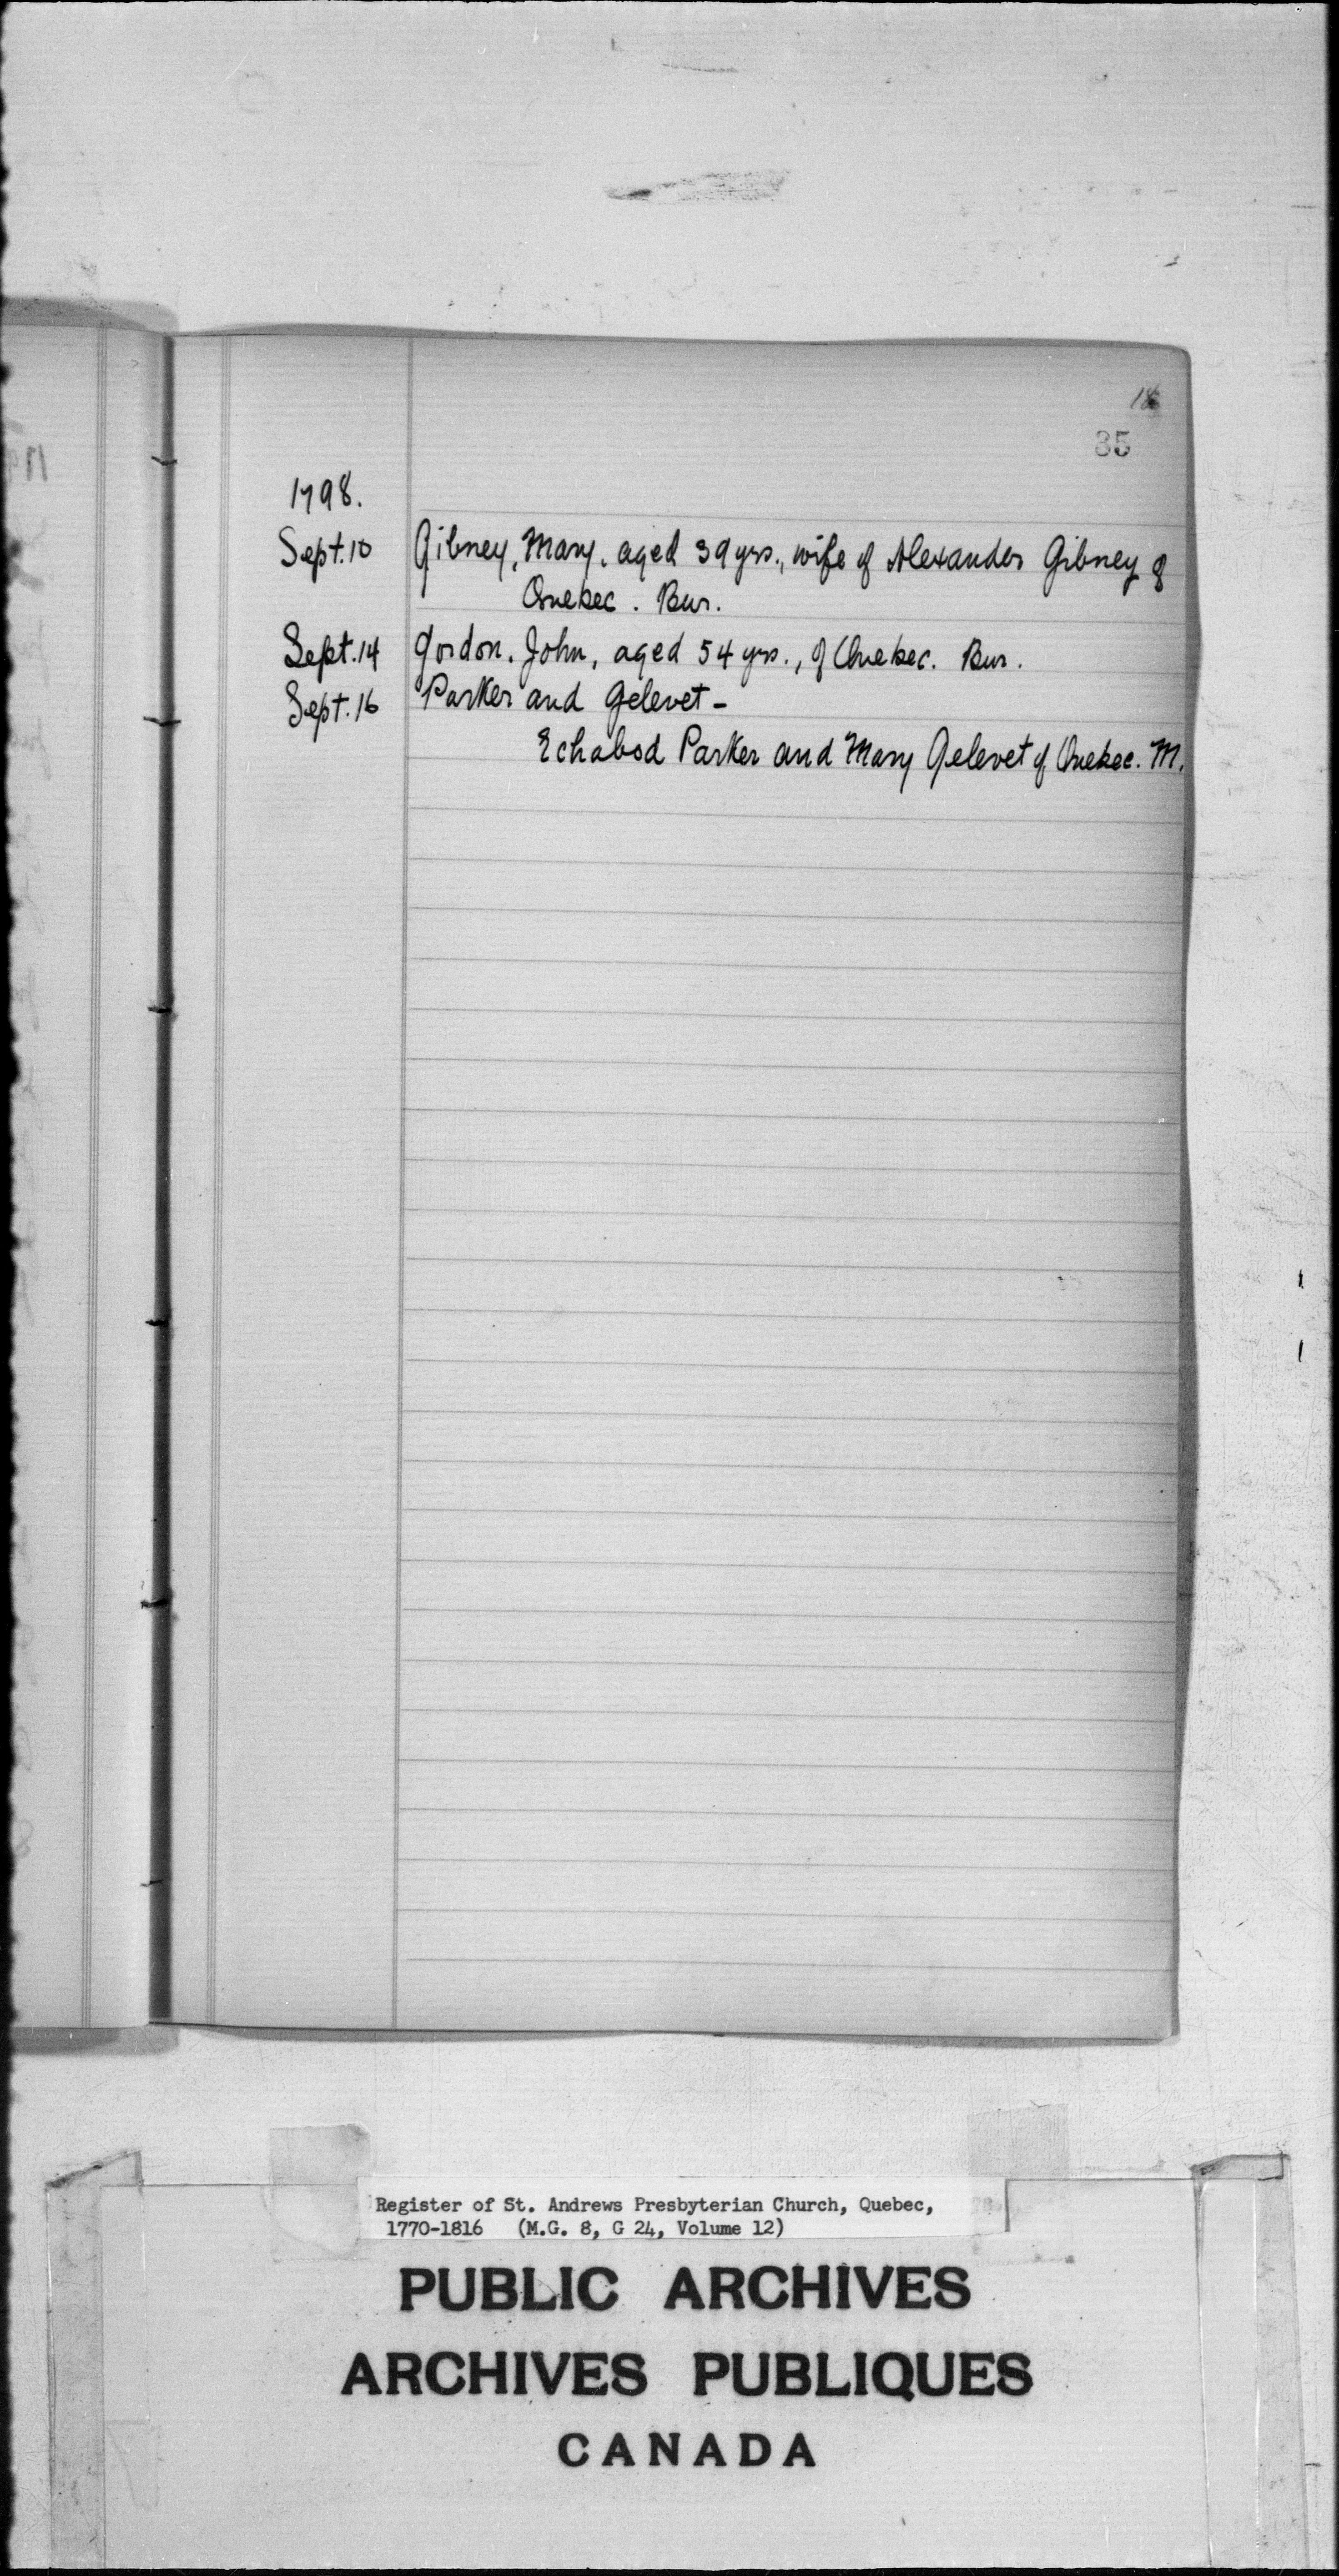 18
35
1798.
Sept. 10 Gibney, Mary. aged 39 yrs., wife of Alexander Gibney of
Quebec. Bur.
Sept. 14 Gordon. John, aged 54 yrs., of Quebec. Bur.
Sept. 16 Parker and Gelevet -
Echabod Parker and Mary Gelevet of Quebec. M.
Register of St. Andrews Presbyterian Church, Quebec,
1770-1816 (M.G. 8, G 24, Volume 12)
PUBLIC ARCHIVES
ARCHIVES PUBLIQUES
CANADA